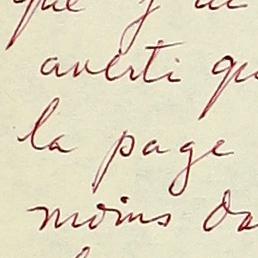 que j'ai
averti qu
la page
moins da